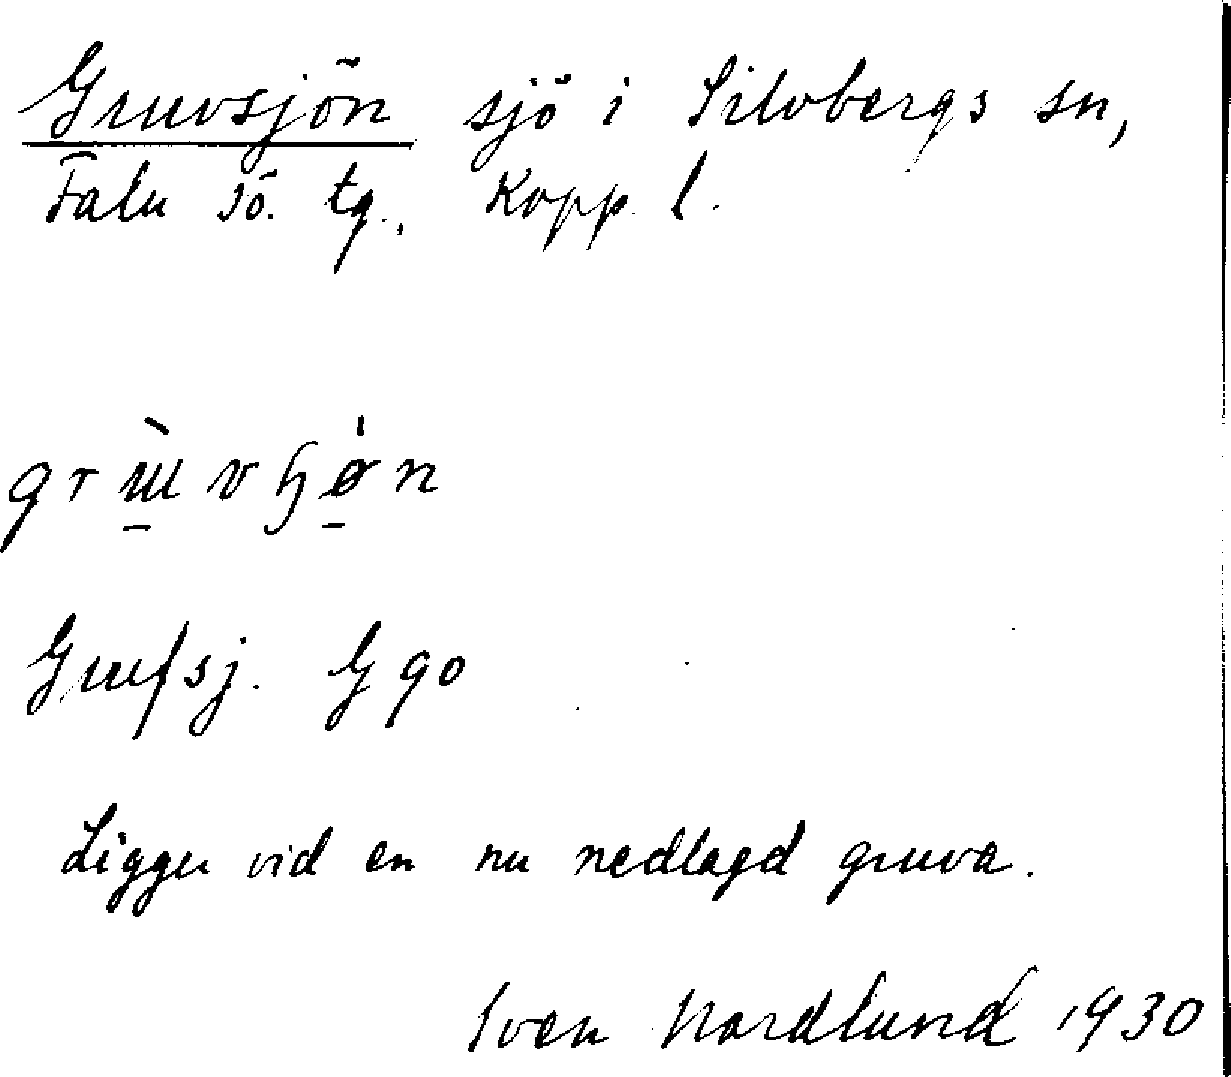 Gruvsjön sjö i Silvbergs sn,
Falu sö. tg., Kopp. l.
Grufsj. G 90
Ligger vid en nu nedlagd gruva.
Sven Nordlund 1930